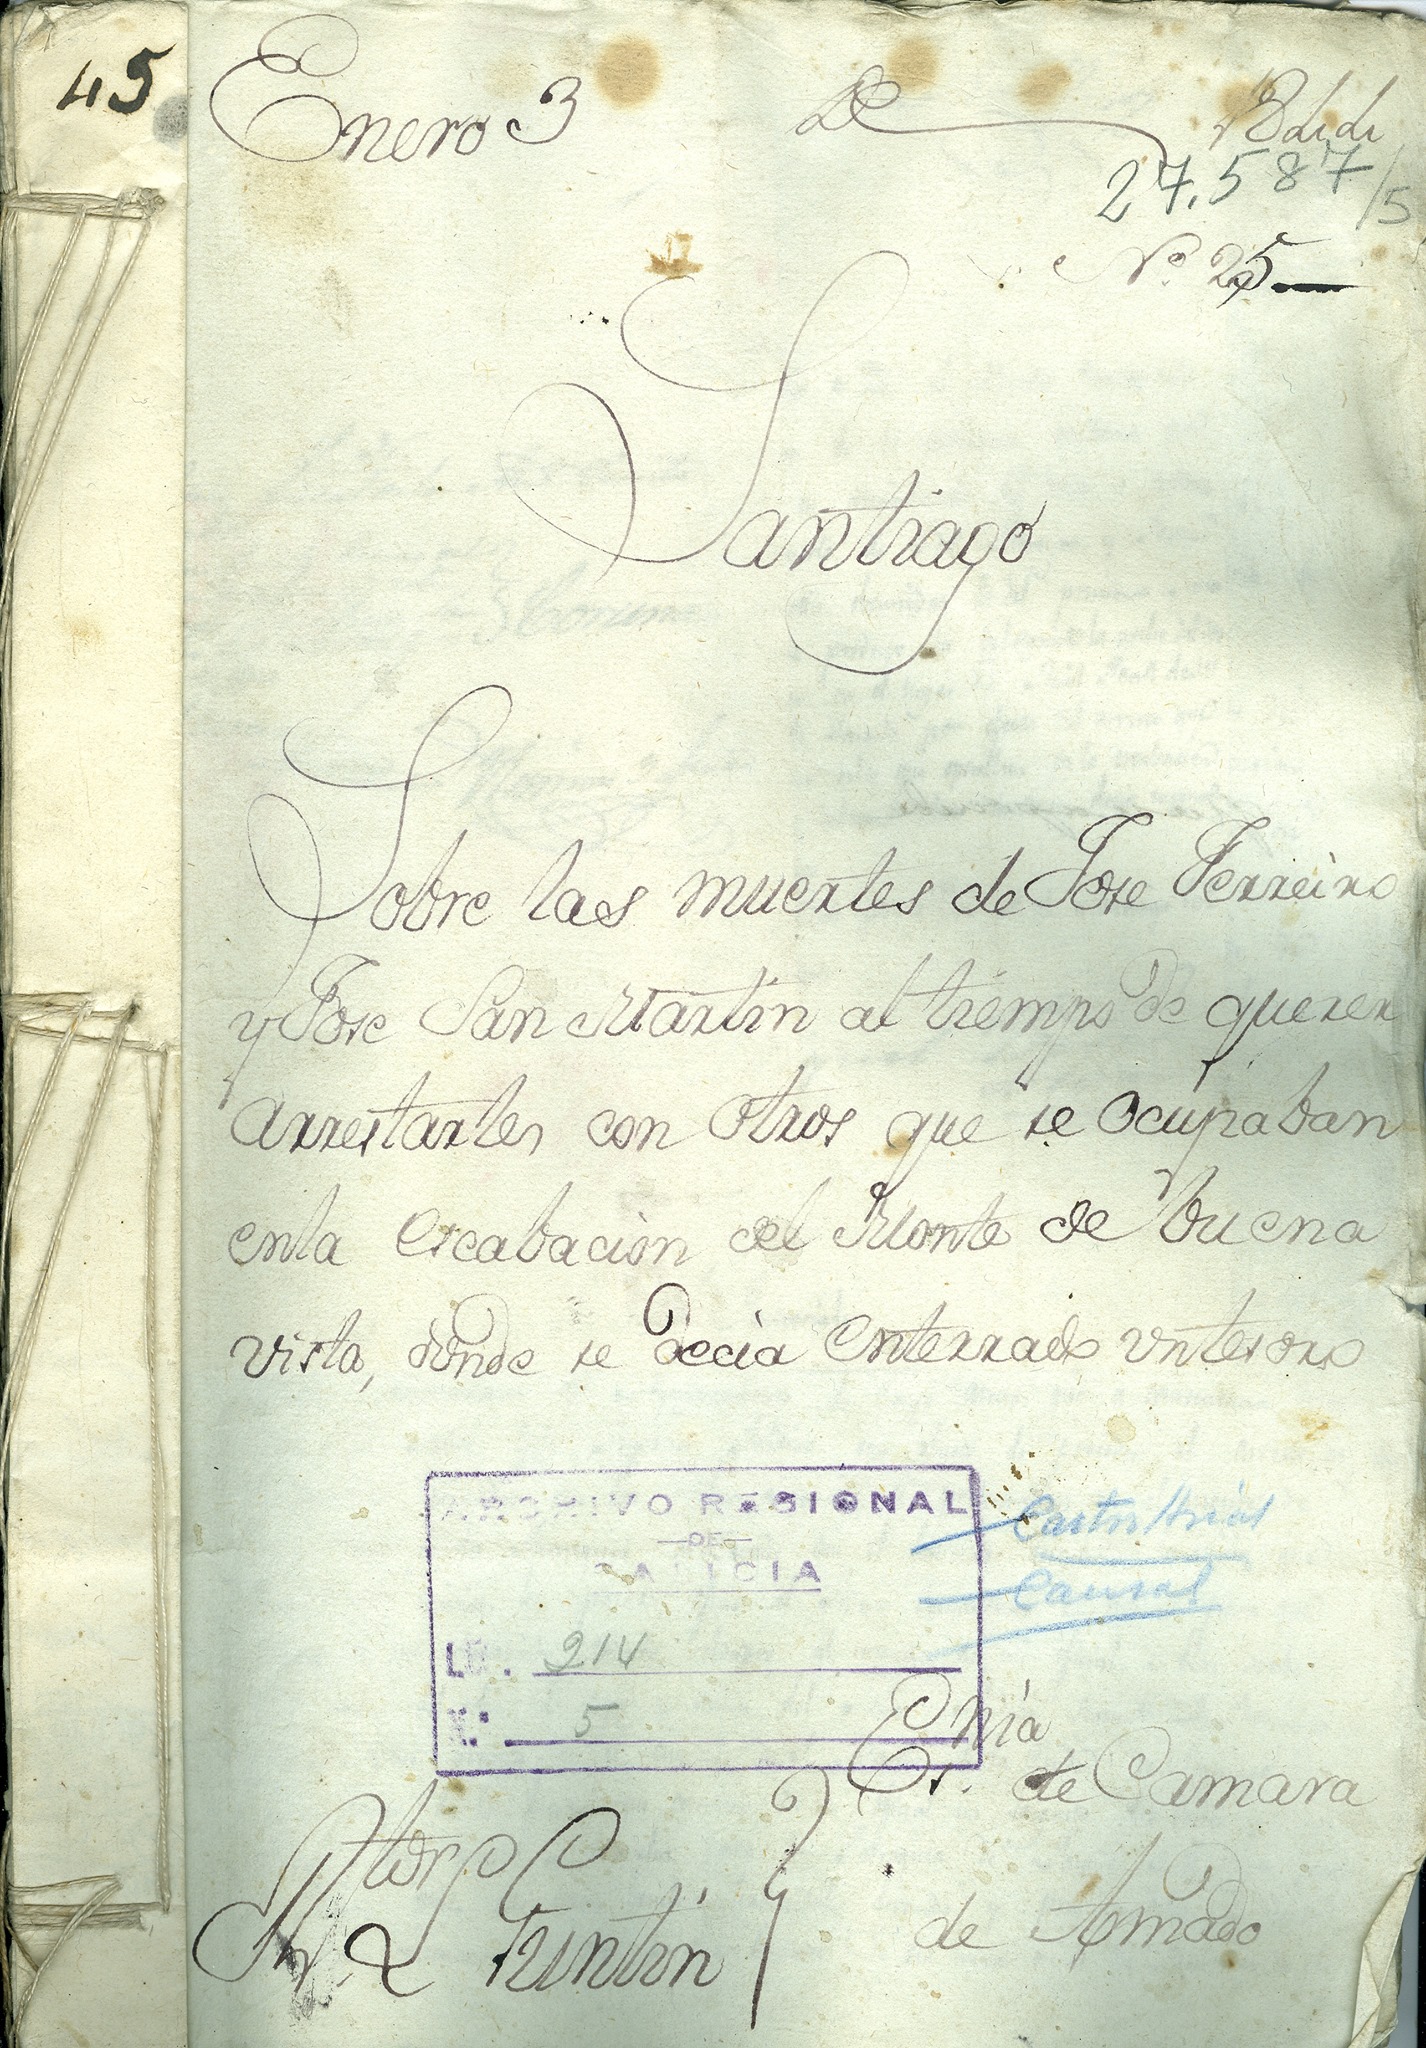 45
Enero 3 De
27.587/5
Nº 25
Santiago
Sobre las muertes de Jose Ferreiro
y Jose San Martin al tiempo de querer
arrestarles con otros que se ocupaban
enla escabacion del Monte de buena
vista, donde se decia enterrado untesoro
ARCHIVO REGIONAL
DE
GALICIA
LG. 214
N.º 5
Causas
Es.nia de Camara
de Amado
Rtor